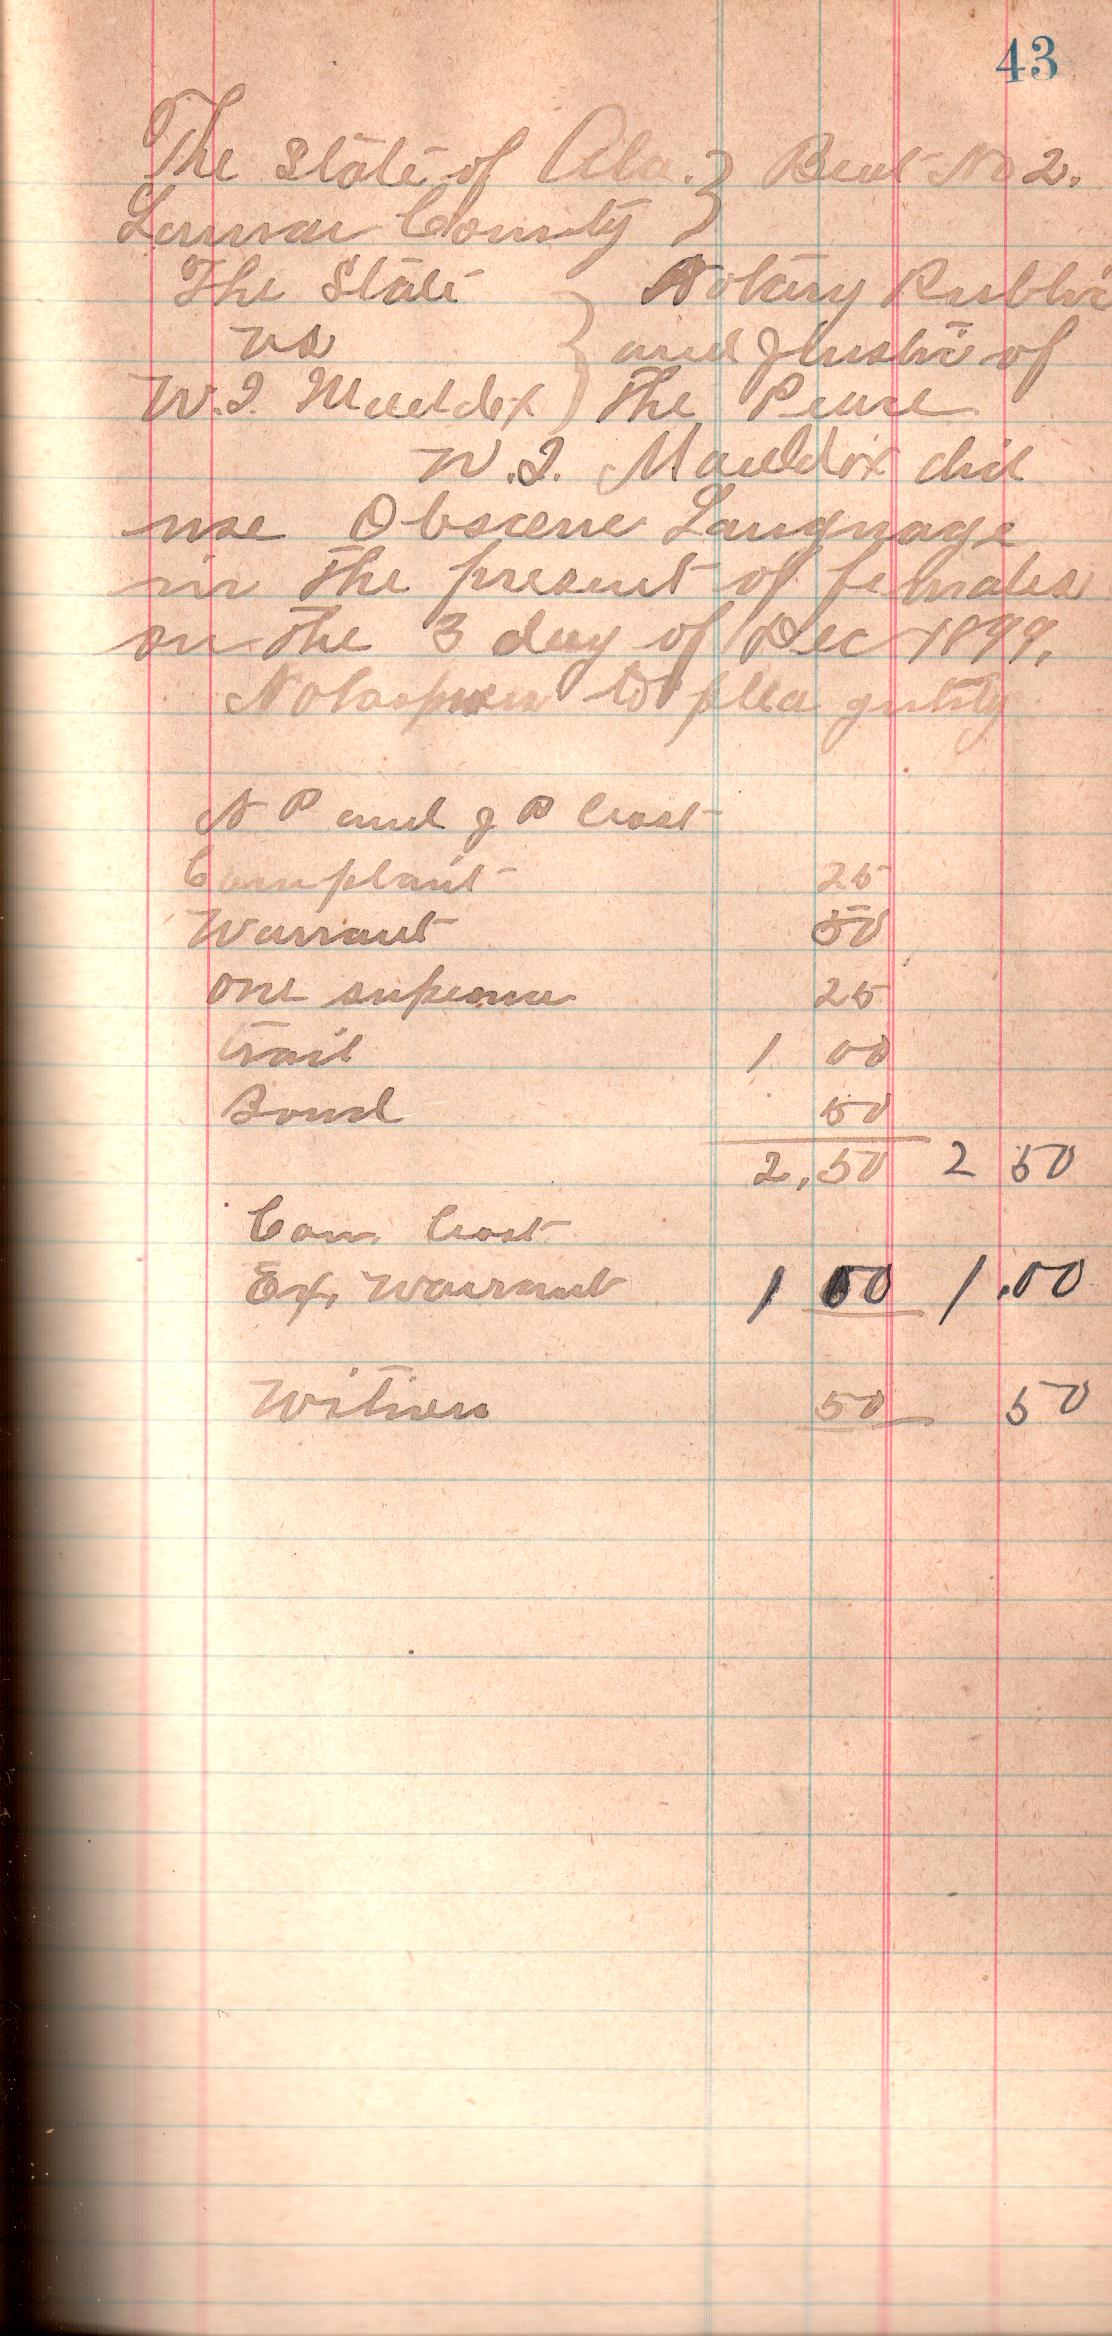 43
The State of Ala. } Beat No 2.
Lamar County }
The State } Notary Public
vs } and Justice of
W.I. Maddox } The Peace
W.I. Maddox did
use Obscene Language
in The present of females
on The 3 day of Dec 1899.
to plea guilty
N P and J P Cost
Complaint 25
Warrant 50
one supeona 25
trail 1 00
Bond 50
2.50 2 50
Con. Cost
Ex. Warrant 1 00 1.00
Witness 50 50